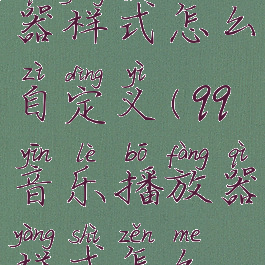 器样式怎么
zì dìng yì
自定义(99
yīn lè bō fàng qì
音乐播放器
yàng shì zěn me